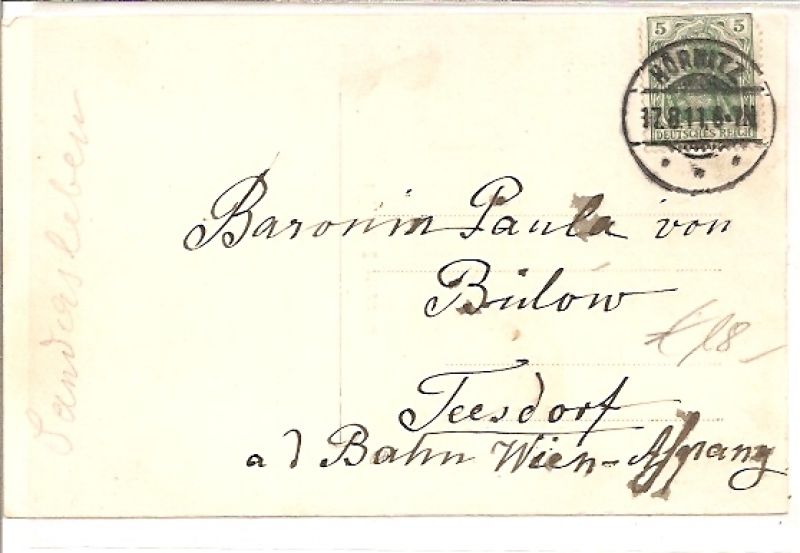 5 5
HÖRNITZ
17.8.11.6-7N
DEUTSCHES REICH
Baronin Paula von
Bülow
Teesdorf
a d Bahn Wien-Aspang
Sandersleben
18-